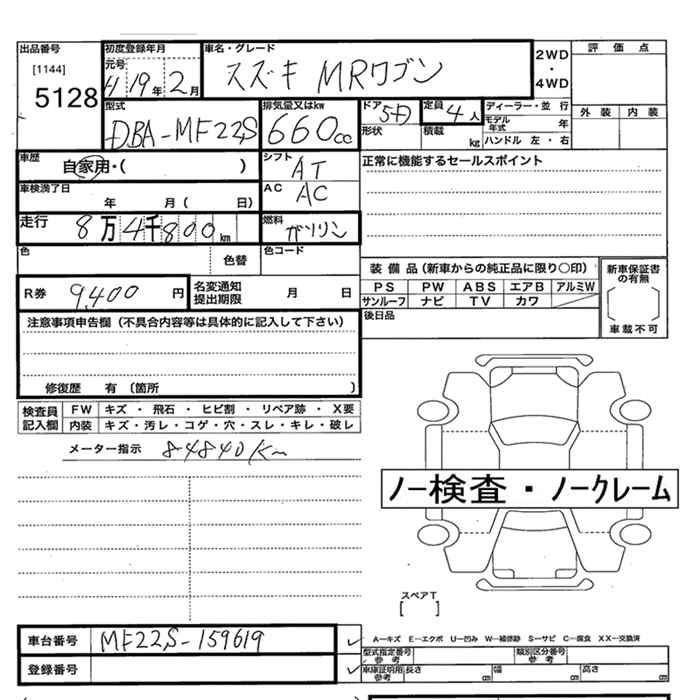 出品番号 初度登録年月 車名・グレード 評価点
[1144] 元号 2WD
5128 H 19年 2月 スズキ MRワゴン ・
4WD
型式 排気量又はkw ドア 定員 ディーラー・並行 外装 内装
DBA-MF22S 660cc 5D 4人 モデル年式 年
形状 積載 kg ハンドル 左・右
車歴 シフト 正常に機能するセールスポイント
自家用・( ) AT
車検満了日 AC
年 月( 日) AC
走行 燃料
8万4千800km ガソリン
色 色替 色コード
装備品(新車からの純正品に限り○印) 新車保証書の有無
R券 9,400円 名変通知提出期限 月 日 PS PW ABS エアB アルミW
サンルーフ ナビ TV カワ
注意事項申告欄(不具合内容等は具体的に記入して下さい) 後日品 車載不可
修復歴 有 (箇所 )
検査員 FW キズ・飛石・ヒビ割・リペア跡・X要
記入欄 内装 キズ・汚レ・コゲ・穴・スレ・キレ・破レ
メーター指示 84840Km
ノー検査・ノークレーム
スペアT
[ ]
車台番号 MF22S-159619 A―キズ E―エクボ U―凹み W―補修跡 S―サビ C―腐食 XX―交換済
型式指定番号 参考 類別区分番号 参考
登録番号 車庫証明用 参考 長さ cm 幅 cm 高さ cm